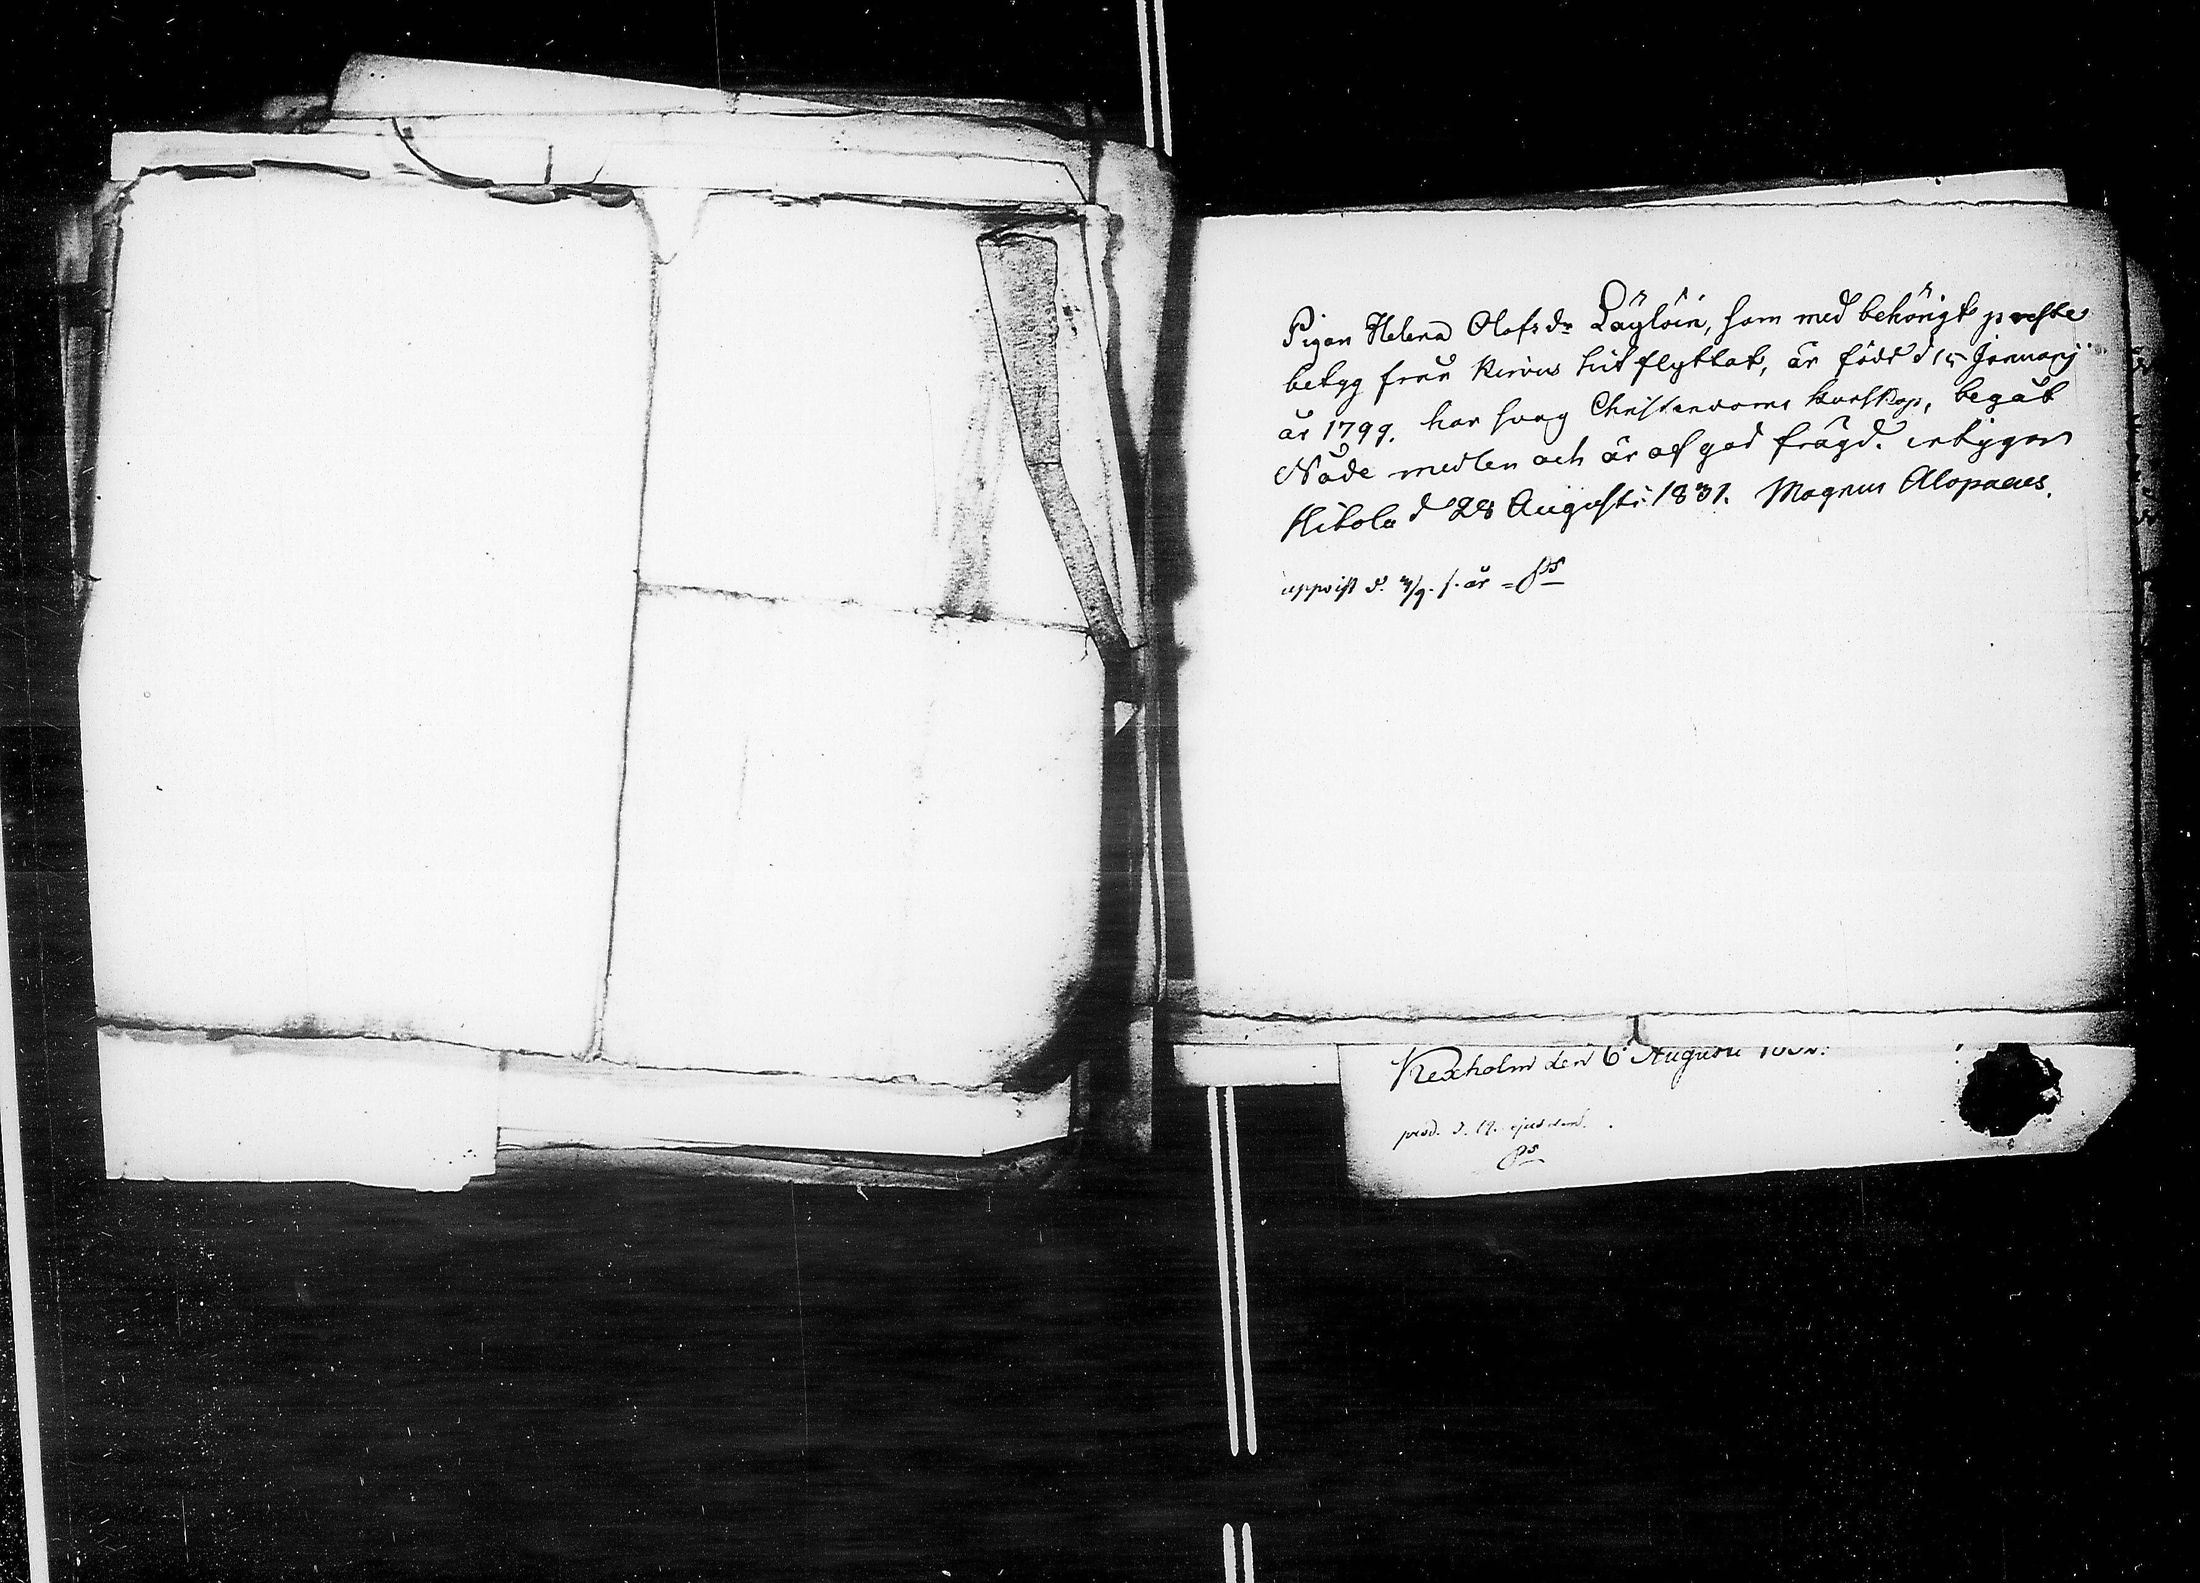 Pigan Helena Olofsdr Räylöin, som med behörigt preste
betyg från Kirvus hit flyttat, är född d 15 Januarij
år 1799. har svag Christendoms kunskap, begåt
Nåde medlen och är af god frägd. intygar
Hitola d 28 Augusti 1831. Magnus Alopaeus.
uppvist d. /9. s. år =
Kexholm den 6 Augusti 1832.
prod. d. 19. ejusdem.